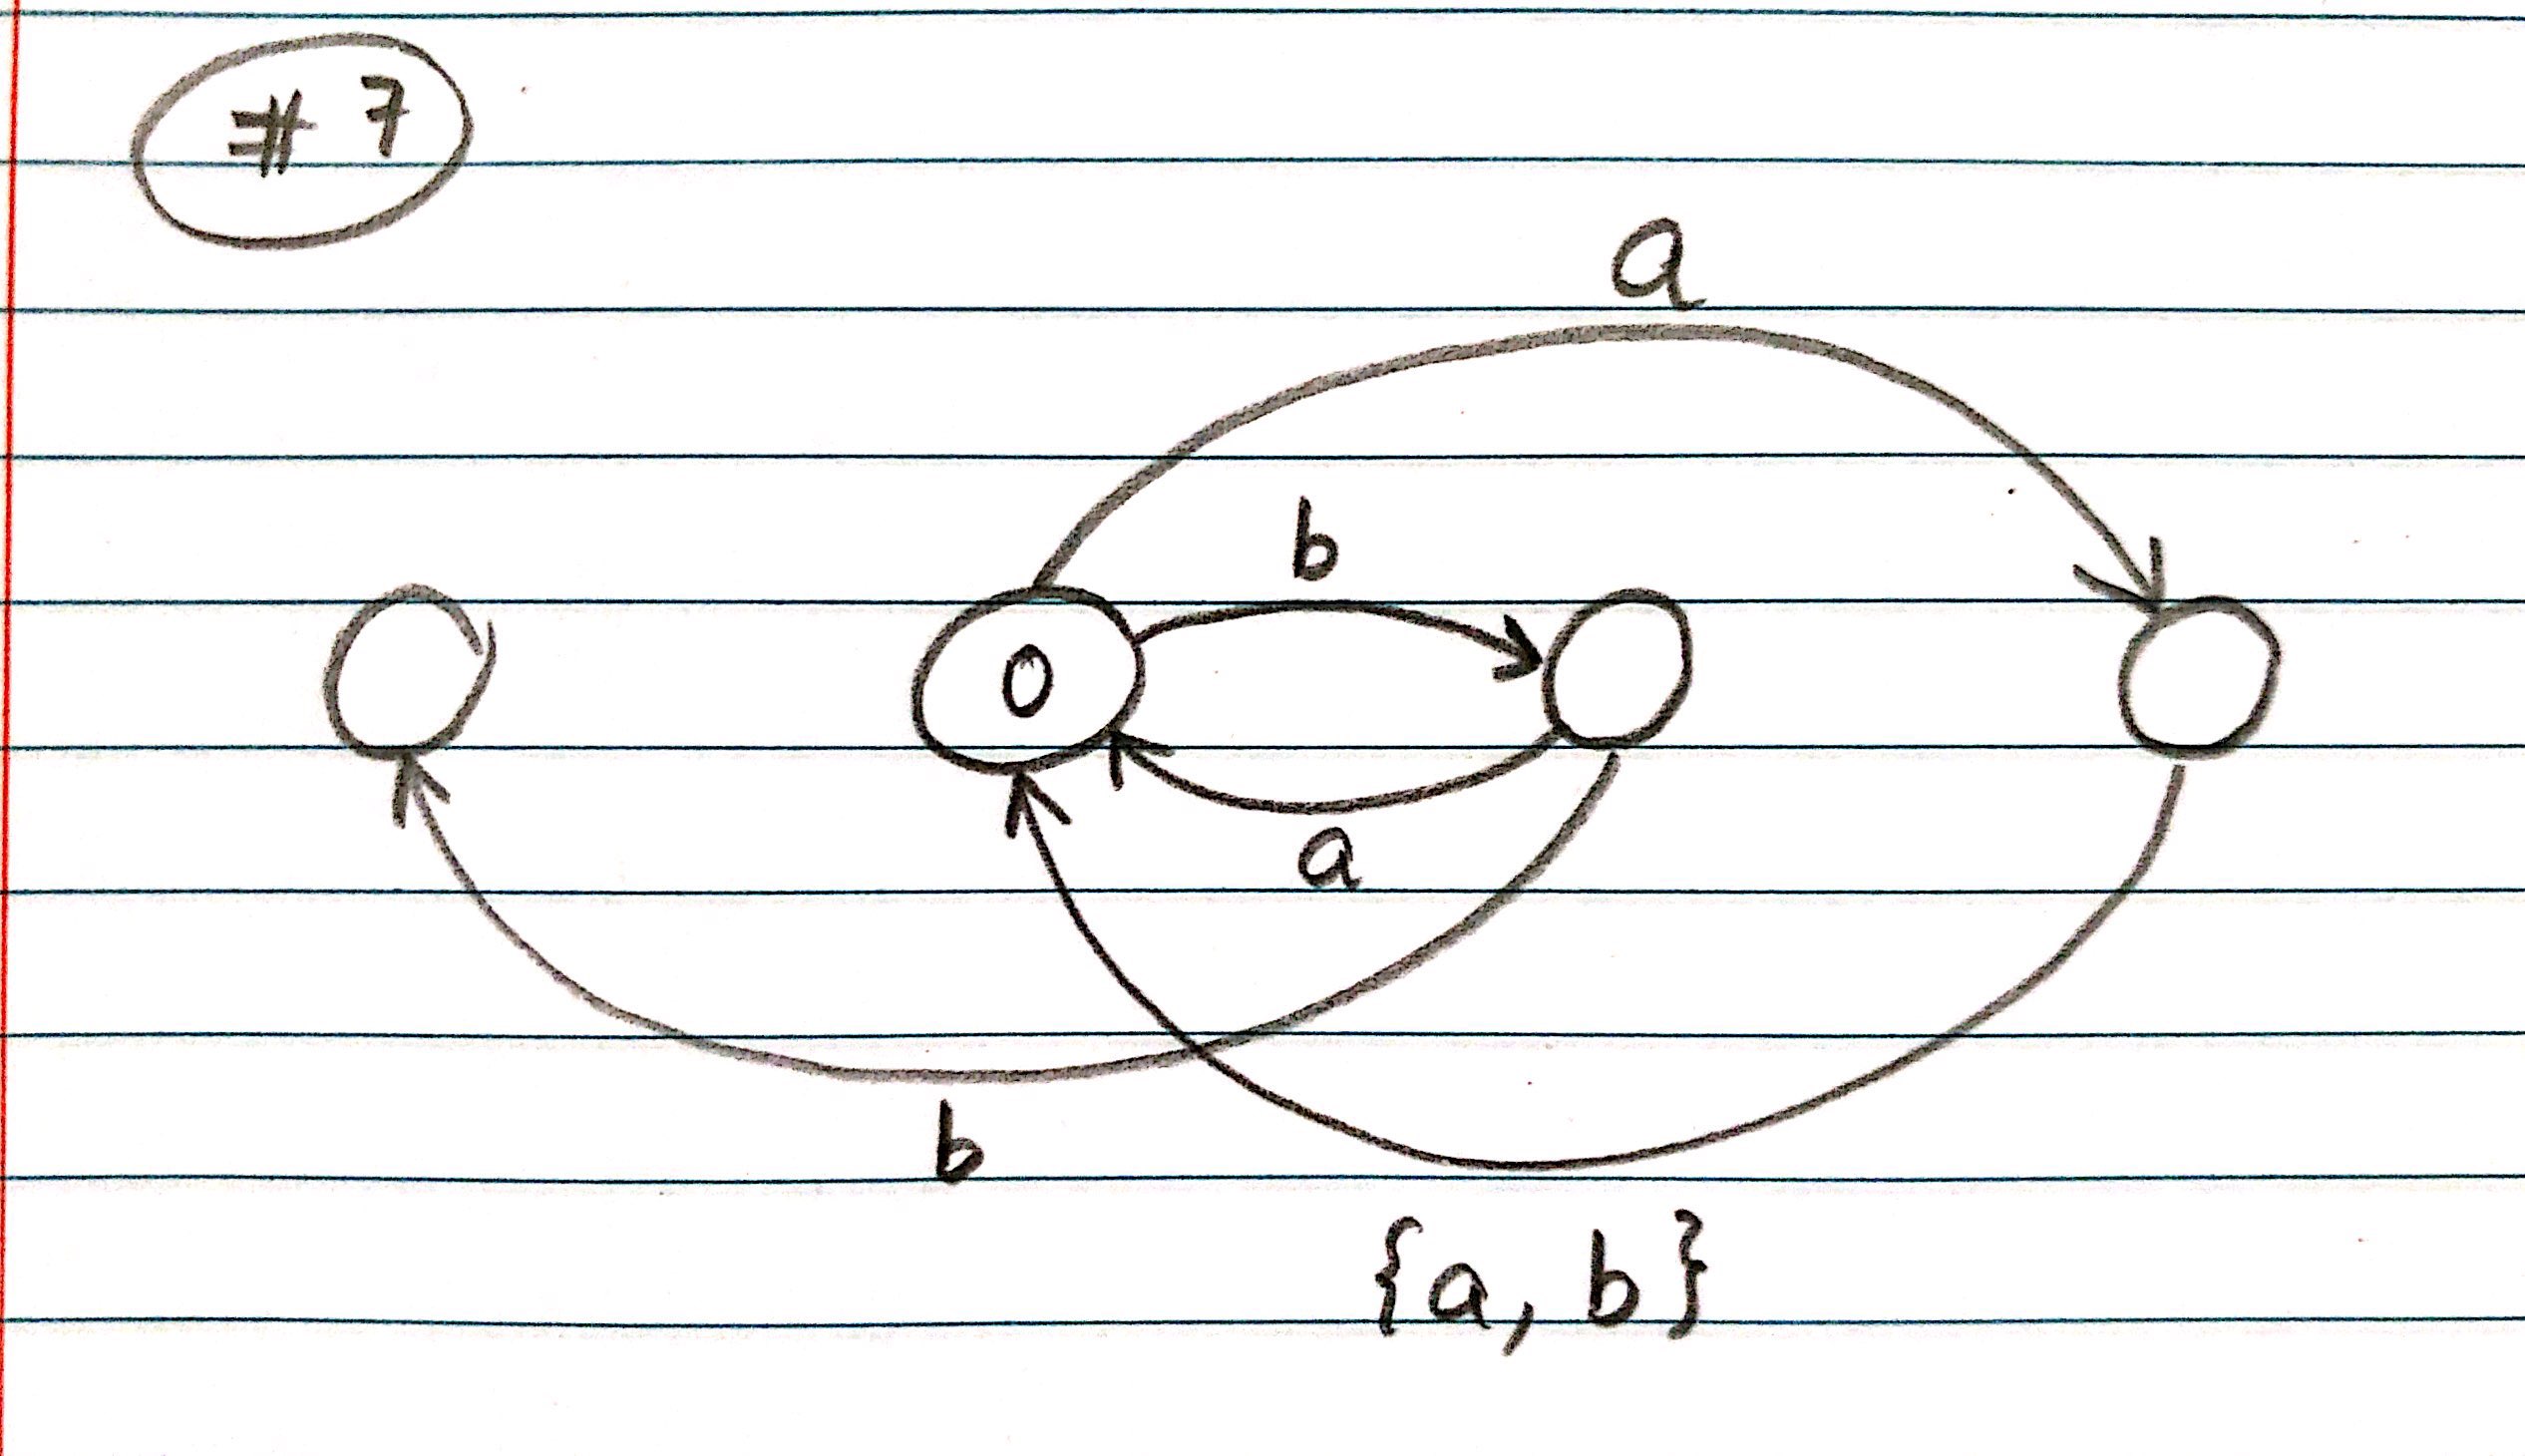 # 7
a
b
0
a
b
{a, b}